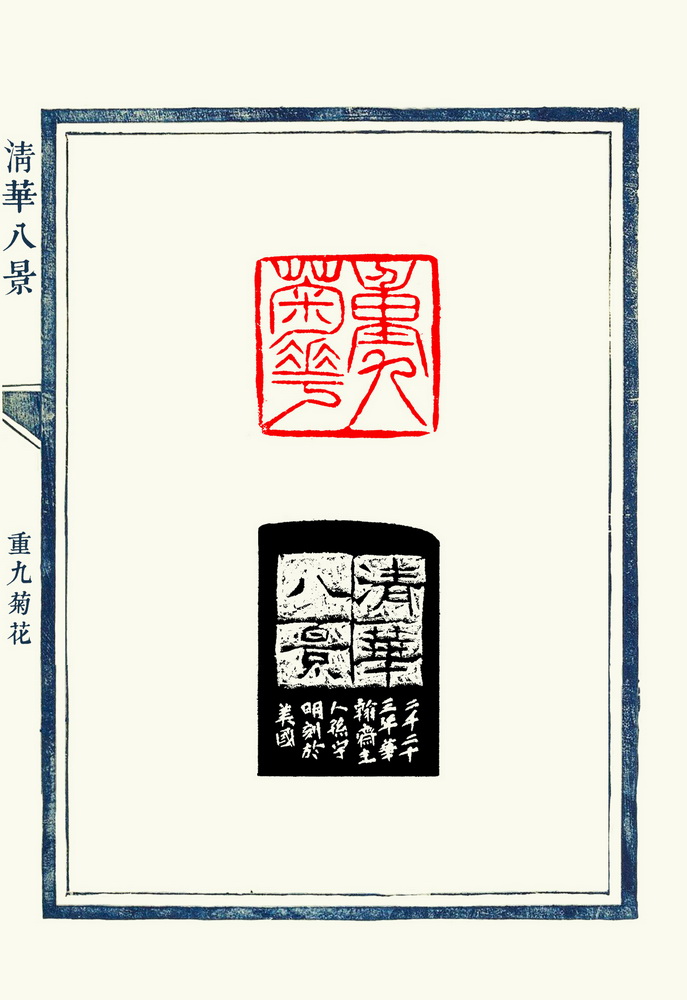 重九
菊華
清華
八景
二千二十
三年華
翰齋主
人孫宇
明刻於
美國
清華八景
重九菊花